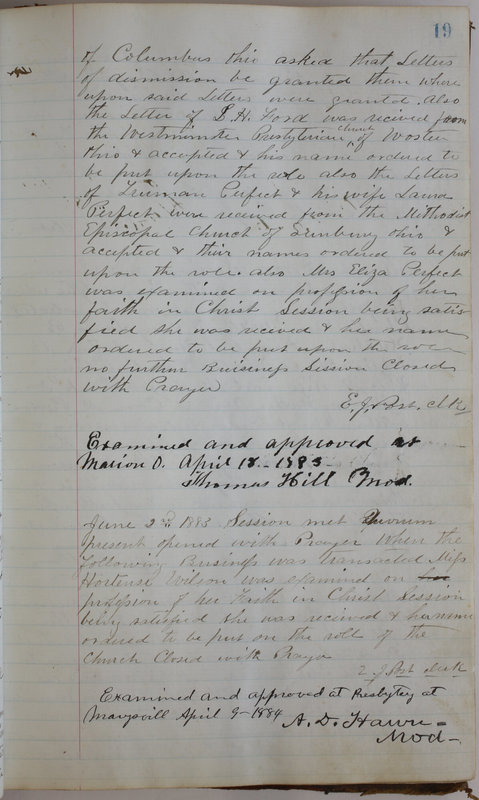 19
of Columbus Ohio asked that Letters
of dismission be granted them where
upon said Letters were granted. also
the Letter of S. H. Ford was recived from
the Westminster Presbyterian Church of Woster
Ohio & accepted & his name ordered to
be put upon the role also the Letters
of Truman Perfect & his wife Laura
Perfect were received from the Methodist
Episcopal Church of Sunbury Ohio &
accepted & thir names ordered to be put
upon the role. also Mrs Eliza Perfect
was examined on profession of her
faith in Christ Session being satis
fied she was recived & her name
ordered to be put upon the role
no further Buisness Session Closed
with Prayer
E. J. Post. Clk
Examined and approved at
Marion O. April 18- 1883-
Thomas Hill Mod.
June 2nd 1883 Session met Quorum
present opened with Prayer when the
following Business was transacted Miss
Hortense Wilson was examined on
profession of her Faith in Christ Session
being satisfied she was received & her name
ordered to be put on the roll of the
Church Closed with Prayer
E J Post clerk
Examined and approved at Presbytery at
Marysvill April 9-1884
A. D. Hawn-
Mod-